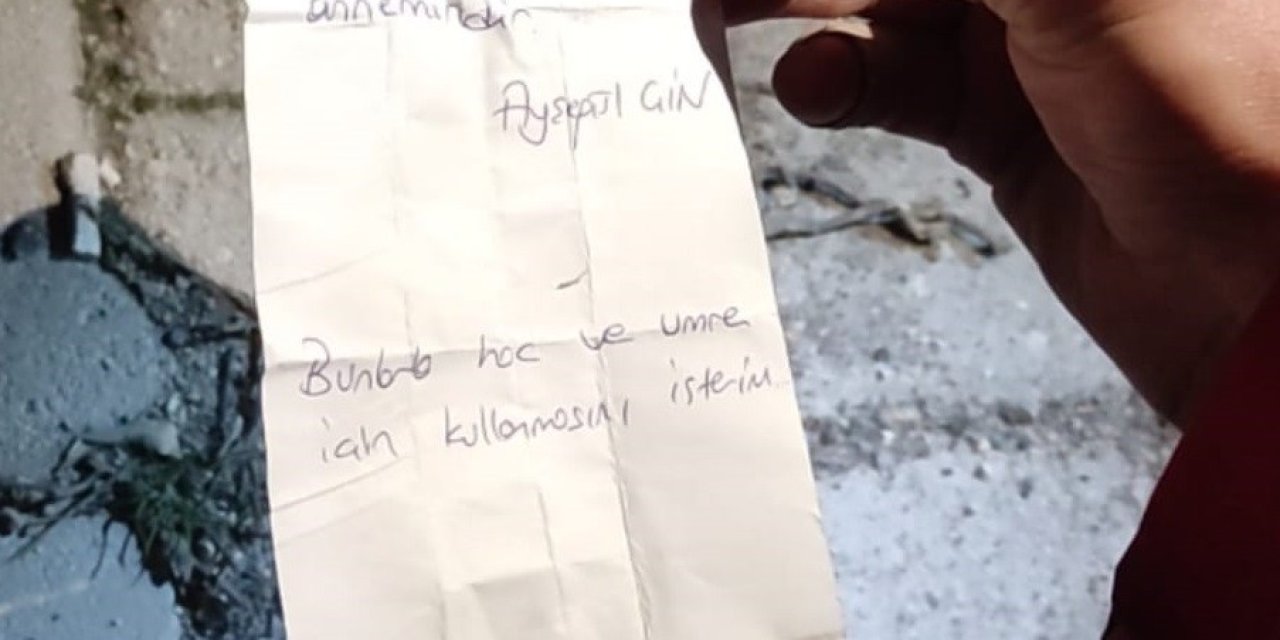 annemindir
Ayşegül GİN
Bunlarla hac ve umre
için kullanmasını isterim